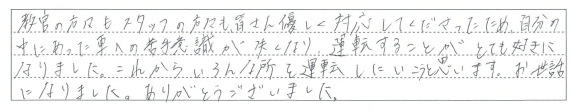 教官の方々もスタッフの方々も皆さん優しく対応してくださったため、自分の
中にあった車への苦手意識が無くなり、運転することがとても好きに
なりました。これからいろんな所を運転しにいこうと思います。お世話
になりました。ありがとうございました。